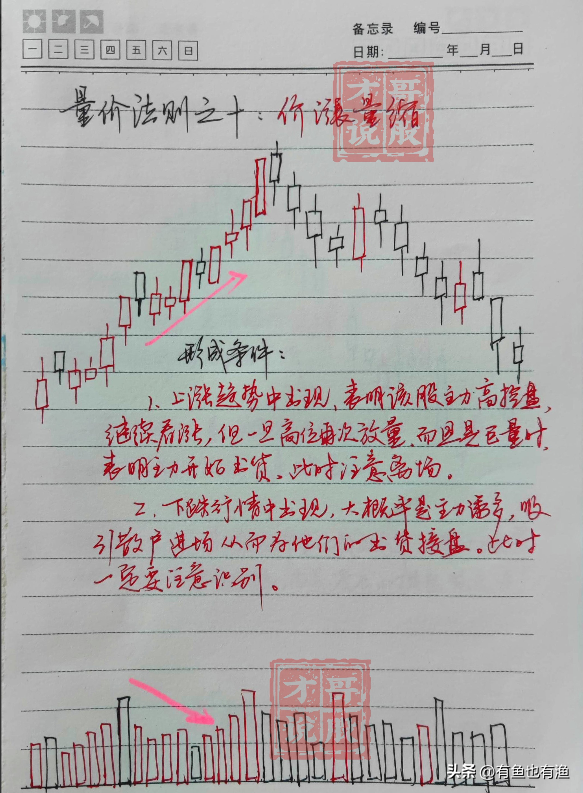 备忘录 编号
一 二 三 四 五 六 日
日期: 年 月 日
量价法则之十：价涨量缩
才哥说股
形成条件：
1、上涨趋势中出现，表明该股主力高控盘，
继续看涨，但一旦高位再次放量，而且是巨量时，
表明主力开始出货，此时注意离场。
2、下跌行情中出现，大概率是主力诱多，吸
引散户进场从而为他们的出货接盘。此时
一定要注意识别。
才哥说股
头条 @有鱼也有渔